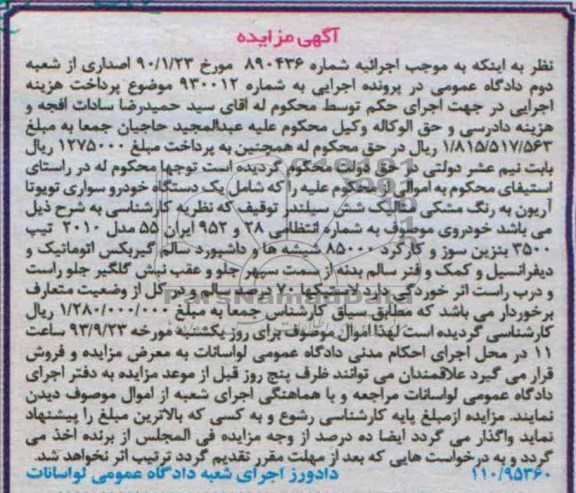 آگهی مزایده
نظر به اینکه به موجب اجرائیه شماره ۸۹۰۴۳۶ مورخ ۹۰/۱/۲۳ اصداری از شعبه
دوم دادگاه عمومی در پرونده اجرایی به شماره ۹۳۰۰۱۲ موضوع پرداخت هزینه
اجرایی در جهت اجرای حکم توسط محکوم له آقای سید حمیدرضا سادات افجه و
هزینه دادرسی و حق الوکاله وکیل محکوم علیه عبدالمجید حاجیان جمعا به مبلغ
۱/۸۱۵/۵۱۷/۵۶۳ ریال در حق محکوم له همچنین به پرداخت مبلغ ۱۲۷۵۰۰۰ ریال
بابت نیم عشر دولتی در حق دولت محکوم گردیده است توجها محکوم له در راستای
استیفای محکوم به اموالی از محکوم علیه را که شامل یک دستگاه خودرو سواری تویوتا
آریون به رنگ مشکی متالیک شش سیلندر توقیف که نظریه کارشناسی به شرح ذیل
می باشد خودروی موصوف به شماره انتظامی ۲۸ و ۹۵۳ ایران ۵۵ مدل ۲۰۱۰ تیپ
۳۵۰۰ بنزین سوز و کارکرد ۸۵۰۰۰ شیشه ها و داشبورد سالم گیربکس اتوماتیک و
دیفرانسیل و کمک و فنر سالم بدنه از سمت سپهر جلو و عقب نیش گلگیر جلو راست
و درب راست اثر خوردگی دارد لاستیکها ۷۰ درصد سالم و در کل از وضعیت متعارف
برخوردار می باشد که مطابق سیاق کارشناس جمعا به مبلغ ۱/۲۸۰/۰۰۰/۰۰۰ ریال
کارشناسی گردیده است لهذا اموال موصوف برای روز یکشنبه مورخه ۹۳/۹/۲۳ ساعت
۱۱ در محل اجرای احکام مدنی دادگاه عمومی لواسانات به معرض مزایده و فروش
قرار می گیرد علاقمندان می توانند ظرف پنج روز قبل از موعد مزایده به دفتر اجرای
دادگاه عمومی لواسانات مراجعه و با هماهنگی اجرای شعبه از اموال موصوف دیدن
نمایند. مزایده ازمبلغ پایه کارشناسی رشوع و به کسی که بالاترین مبلغ را پیشنهاد
نماید واگذار می گردد ایضا ده درصد از وجه مزایده فی المجلس از برنده اخذ می
گردد و به درخواست هایی که بعد از مهلت مقرر تقدیم گردد ترتیب اثر نخواهد شد.
۱۱۰/۹۵۳۶۰ دادورز اجرای شعبه دادگاه عمومی لواسانات
ParsNamadData